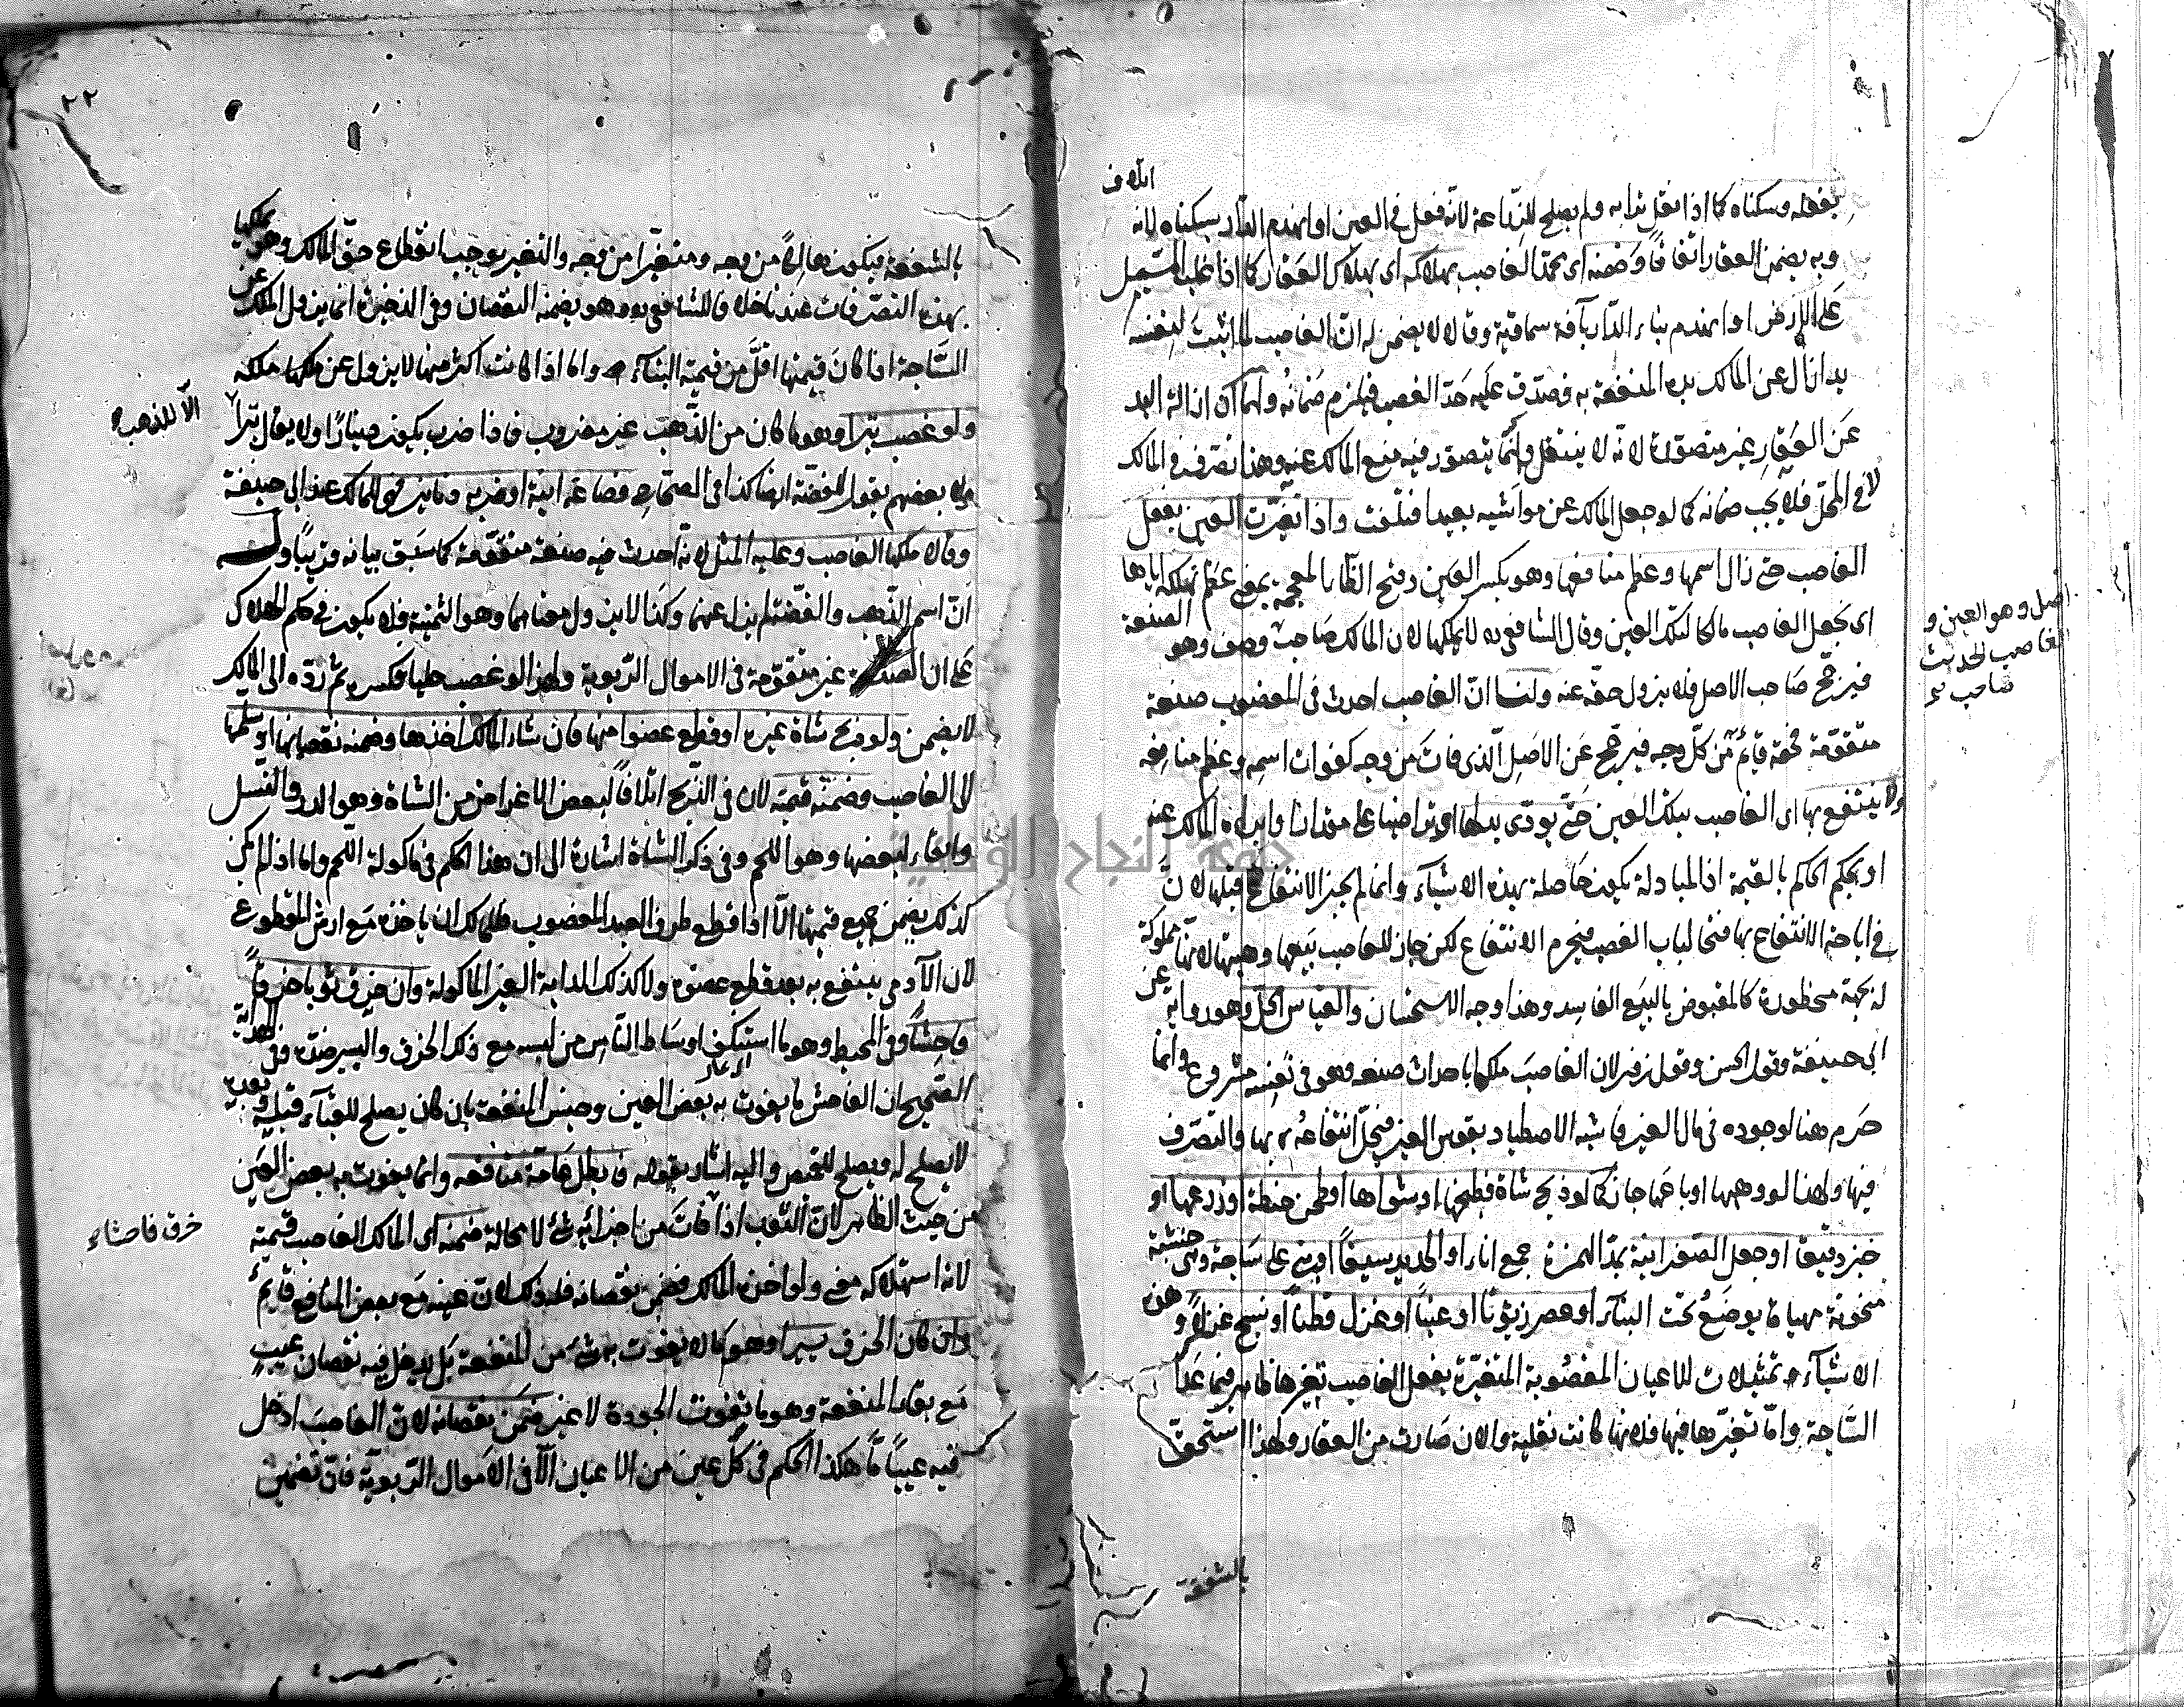 اتلاف
بفعله وسكناه كما اذا نقل ترابه ولم يصلح للزراعة لانه فعل في العين او انهدم الدار بسكناه لانه
وبه يضمن العقار اتفاقا وضمنه اى محمد الغاصب بهلاكه اى بهلاك العقار كما اذا غلب السيل
على الارض او انهدم بناء الدار بآفة سماوية وقالا لا يضمن له ان الغاصب لما اثبت لنفسه
يدا ازال عن المالك يده المنفعة به فصدق عليه حد الغصب فيلزم ضمانه ولهما ان ازالة اليد
عن العقار غير متصورة لانه لا ينتقل وانما يتصور فيه منع المالك عنه وهذا تصرف في المالك
لا في المحل فلا يجب ضمانه كما لو جعل المالك عن مواشيه بعيدا فتلفت واذا تغيرت العين بفعل
الغاصب حتى زال اسمها وعظم منافعها وهو بكسر العين وفتح الظاء المعجمة بمعنى عظم تملكه اياها
اى تجعل الغاصب مالكا لتلك العين وقال الشافعى ره لا يملكها لان المالك صاحب وصف وهو الصنعة
فيرجح صاحب الاصل فلا يزول حقه عنه ولنا ان الغاصب احدث فى المغصوب صنعة
متقومة فحقه قائم من كل وجه فيرجح عن الاصل الذى فات من وجه كفوات اسمه وعظم منافعه
ولا ينتفع بها اى الغاصب بتلك العين حتى يودى بدلها او تراضيا على مقدار او ابراءه المالك عنه
او يحكم الحاكم بالقيمة اذ المبادلة يكون حاصلة بهذه الاشياء وانما لم يجز الانتفاع قبلها لان
في اباحة الانتفاع بها فتحا لباب الغصب فيحرم الانتفاع لكن جاز للغاصب بيعها وهبتها لانها مملوكة
له بجهة محظورة كالمقبوض بالبيع الفاسد وهذا وجه الاستحسان والقياس الحل وهو رواية عن
ابى حنيفة وقول الحسن وقول زفر لان الغاصب ملكها باحداث صنعه وهو فى نفسه مشروع وانما
حرم هنا لوجوده فى مال الغير فاشبه الاصطياد بقوس الغير فيحل انتفاعه بها والتصرف
فيها ولهذا لو وهبها او باعها جاز كما لو ذبح شاة فطبخها او شواها او طحن حنطة او زرعها او
خبز دقيقا او جعل الصفر انية بمد الهمزة جمع اناء او الحديد سيفا او بنى على ساجة وهى خشبة
منحوتة مهياة يوضع تحت البناء او عصر زيتونا او عنبا او غزل قطنا او نسج غزلا وهذه
الاشياء تمثيلات للاعيان المغصوبة المتغيرة بفعل الغاصب تغيرها ظاهر فيما عدا
الساجة واما تغيرها فيها فلانها كانت نقلية والان صارت من العقار ولهذا استحق
بالشفعة
اصل وهو العين و
الغاصب لحديث
صاحب
٢٢
بالشفعة فيكون هالكا من وجه ومتغيرا من وجه والتغير يوجب انقطاع حق المالك وهو يملكها
بهذه التصرفات عندنا خلافا للشافعى ره وهو يضمنه النقصان وفى الذخيرة انما يزول الملك عن
الساجة اذا كان قيمتها اقل من قيمة البناء واما اذا كانت اكثر منها لا يزول عن ملكها ملكه
ولو غصب تبرا وهو ما كان من الذهب غير مضروب فاذا ضرب يكون دينارا ولا يقال تبرا
الا للذهب
بعضهم يقول للفضة ايضا كذا فى الصحاح فصاغه انية او ضربه دنانير فهى للمالك عند ابى حنيفة
وقالا ملكها الغاصب وعليه المثل لانه احدث فيه صنعة متقومة كما سبق بيانه قريبا وله
ان اسم الذهب والفضة لم يزل عنهما وكذا لا يزول معناهما وهو الثمنية فلا يكون فى حكم الهلاك
على ان الصنعة غير متقومة فى الاموال الربوية ولهذا لو غصب حليا فكسره ثم رده الى المالك
لا يضمن ولو ذبح شاة غيره او قطع عضوا منها فان شاء المالك اخذها وضمنه نقصانها او سلمها
الى الغاصب وضمنه قيمته لان فى الذبح اتلافا لبعض الاغراض من الشاة وهو الدر والنسل
وابقاء لبعضها وهو اللحم وفى ذكر الشاة اشارة الى ان هذا الحكم فى ماكولة اللحم واما اذا لم يكن
كذلك يضمن جميع قيمتها الا اذا قطع طرف العبد المغصوب فللمالك ان ياخذه مع ارش المقطوع
لان الادمى ينتفع به بعد قطع عضوه ولا كذلك الدابة الغير الماكولة وان خرق ثوبا خرقا
فاحشا وفى المحيط وهو ما استنكف اوساط الناس من لبسه مع ذلك الخرق واليسير ضده وفى الهداية
الصحيح ان الفاحش ما يفوت به بعض العين وجنس المنفعة بان كان يصلح للقباء قبله وبعده
لا يصلح له ويصلح للقميص واليه اشار بقوله فابطل عامة منافعه وانما يفوت به بعض العين
من حيث الظاهر لان الثوب اذا فات من اجزائه شئ لا محالة ضمنه اى المالك الغاصب قيمته
خرق فاحشا
لانه استهلاكه معنى ولو اخذه المالك فضمن نقصانه فله ذلك لان عينه مع بعض المنافع قائم
وان كان الخرق يسيرا وهو ما لا يفوت به شئ من المنفعة بل يدخل فيه نقصان عيب
مع بقاء المنفعة وهو ما تفوت الجودة لا غير ضمن نقصانه لان الغاصب ادخل
فيه عيبا هكذا الحكم فى كل عين من الاعيان الا فى الاموال الربوية فان تضمين